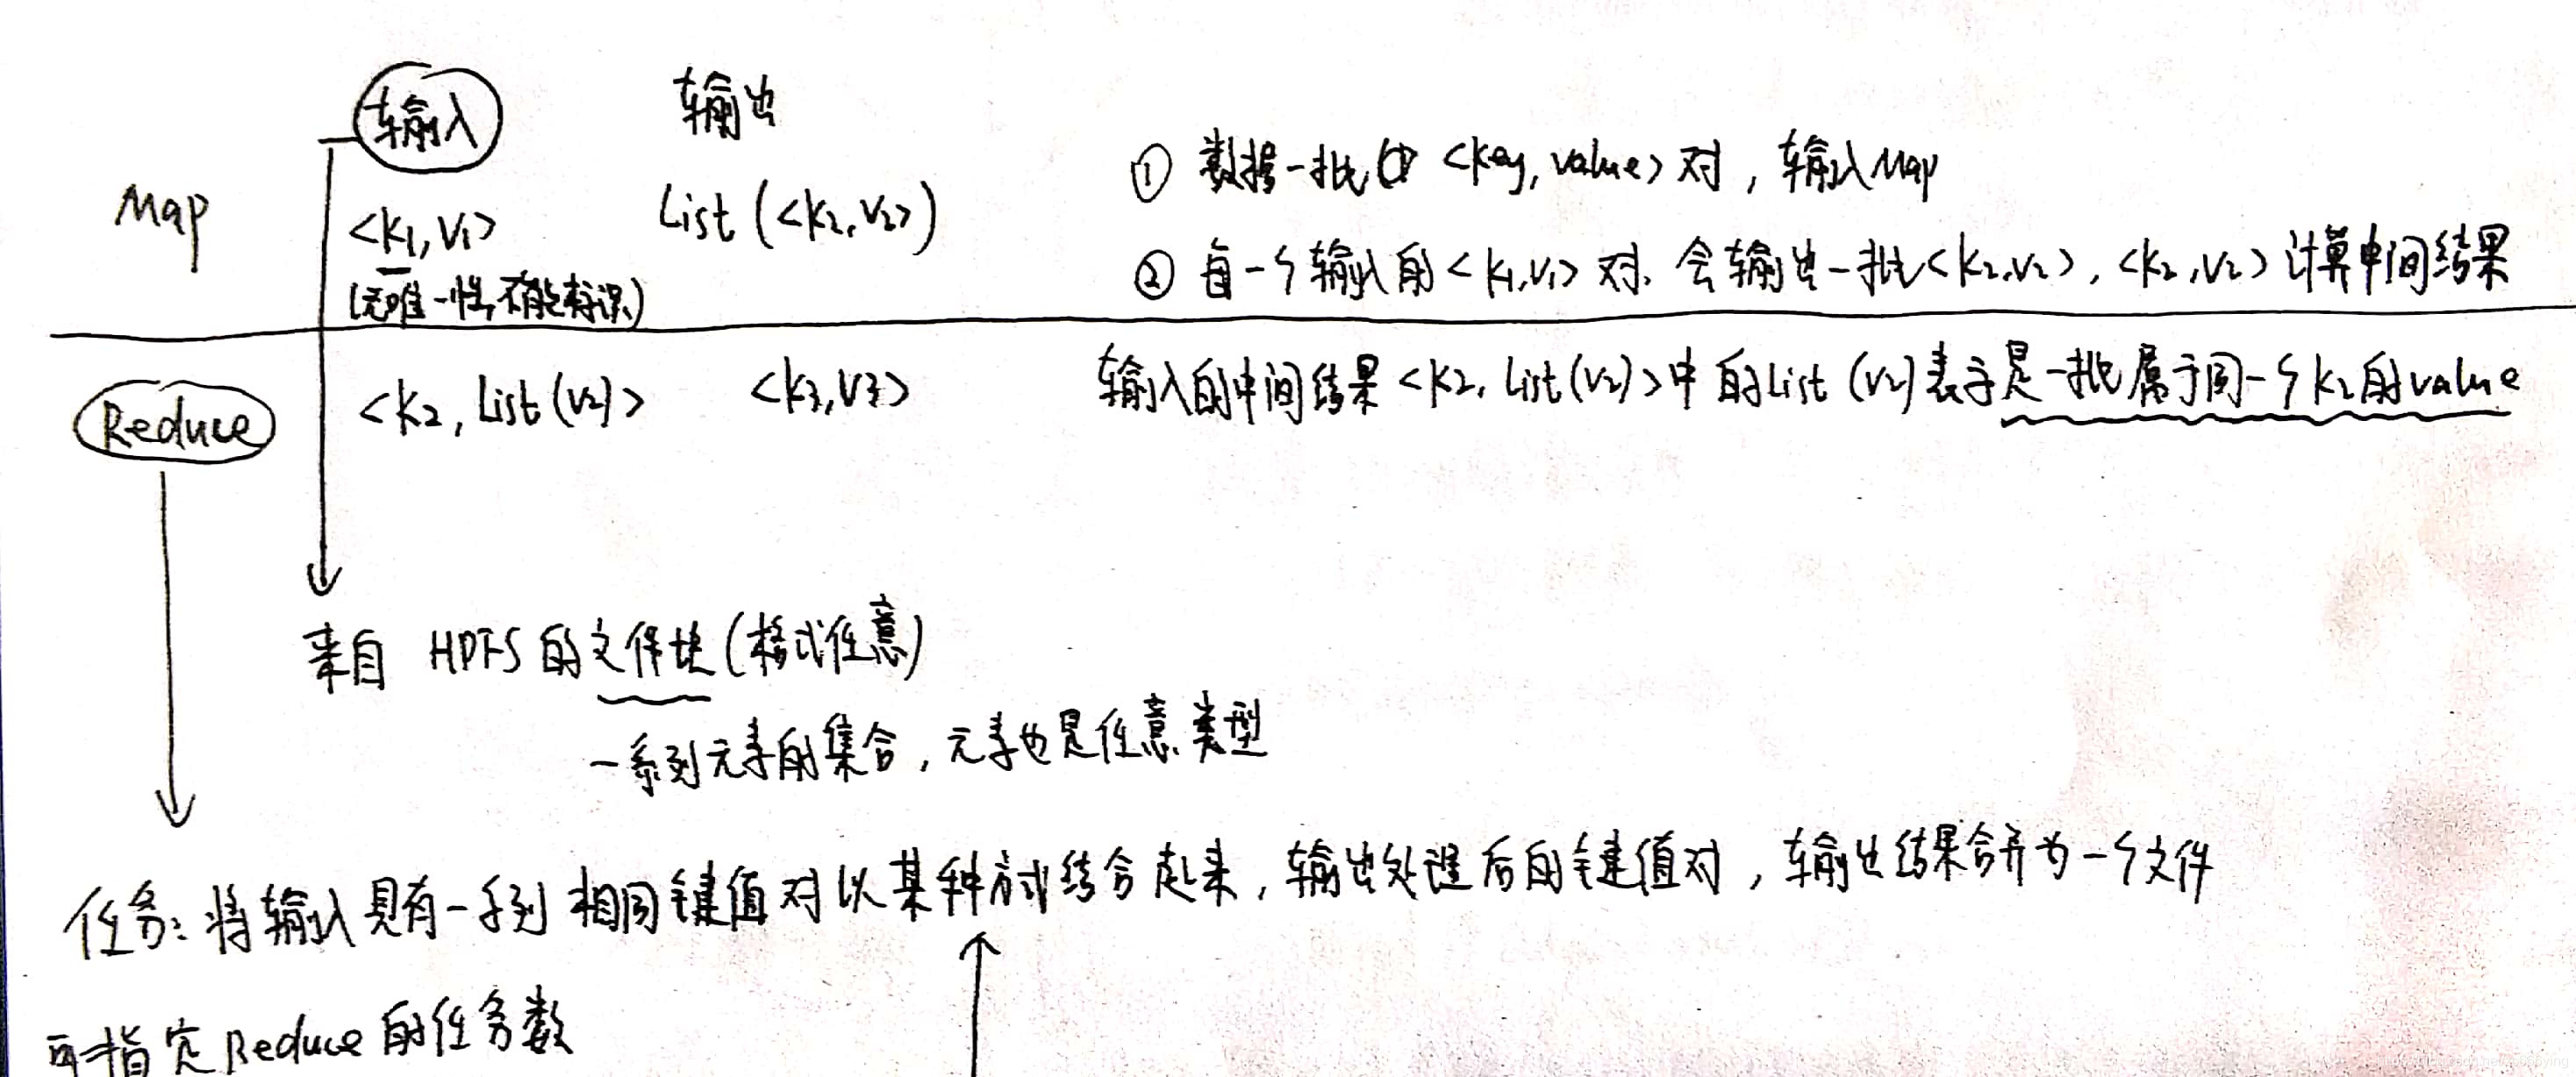 输入 输出
Map <k1,v1> List (<k2,v2>)
(无唯一性,不能标识)
① 数据一批 <key, value> 对,输入Map
② 每一个输入的<k1,v1>对,会输出一批<k2,v2>,<k2,v2>计算中间结果
Reduce <k2, List(v2)> <k3,v3> 输入的中间结果<k2, List(v2)>中的List (v2)表示是一批属于同一个k2的value
来自 HDFS 的文件块(格式任意)
一系列元素的集合,元素也是任意类型
任务:将输入具有一系列相同键值对以某种方式结合起来,输出处理后的键值对,输出结果合并为一个文件
可指定Reduce的任务数